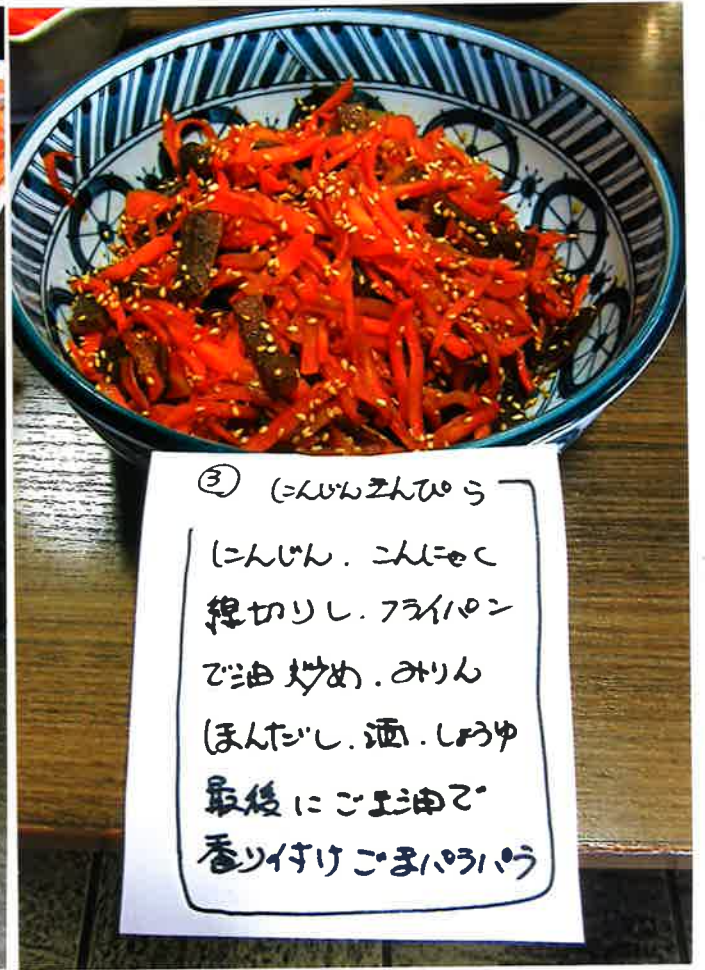 ③ にんじんきんぴら
にんじん．こんにゃく
線切りし．フライパン
で油炒め．みりん
ほんだし．酒．しょうゆ
最後にごま油で
香り付けごまパラパラ